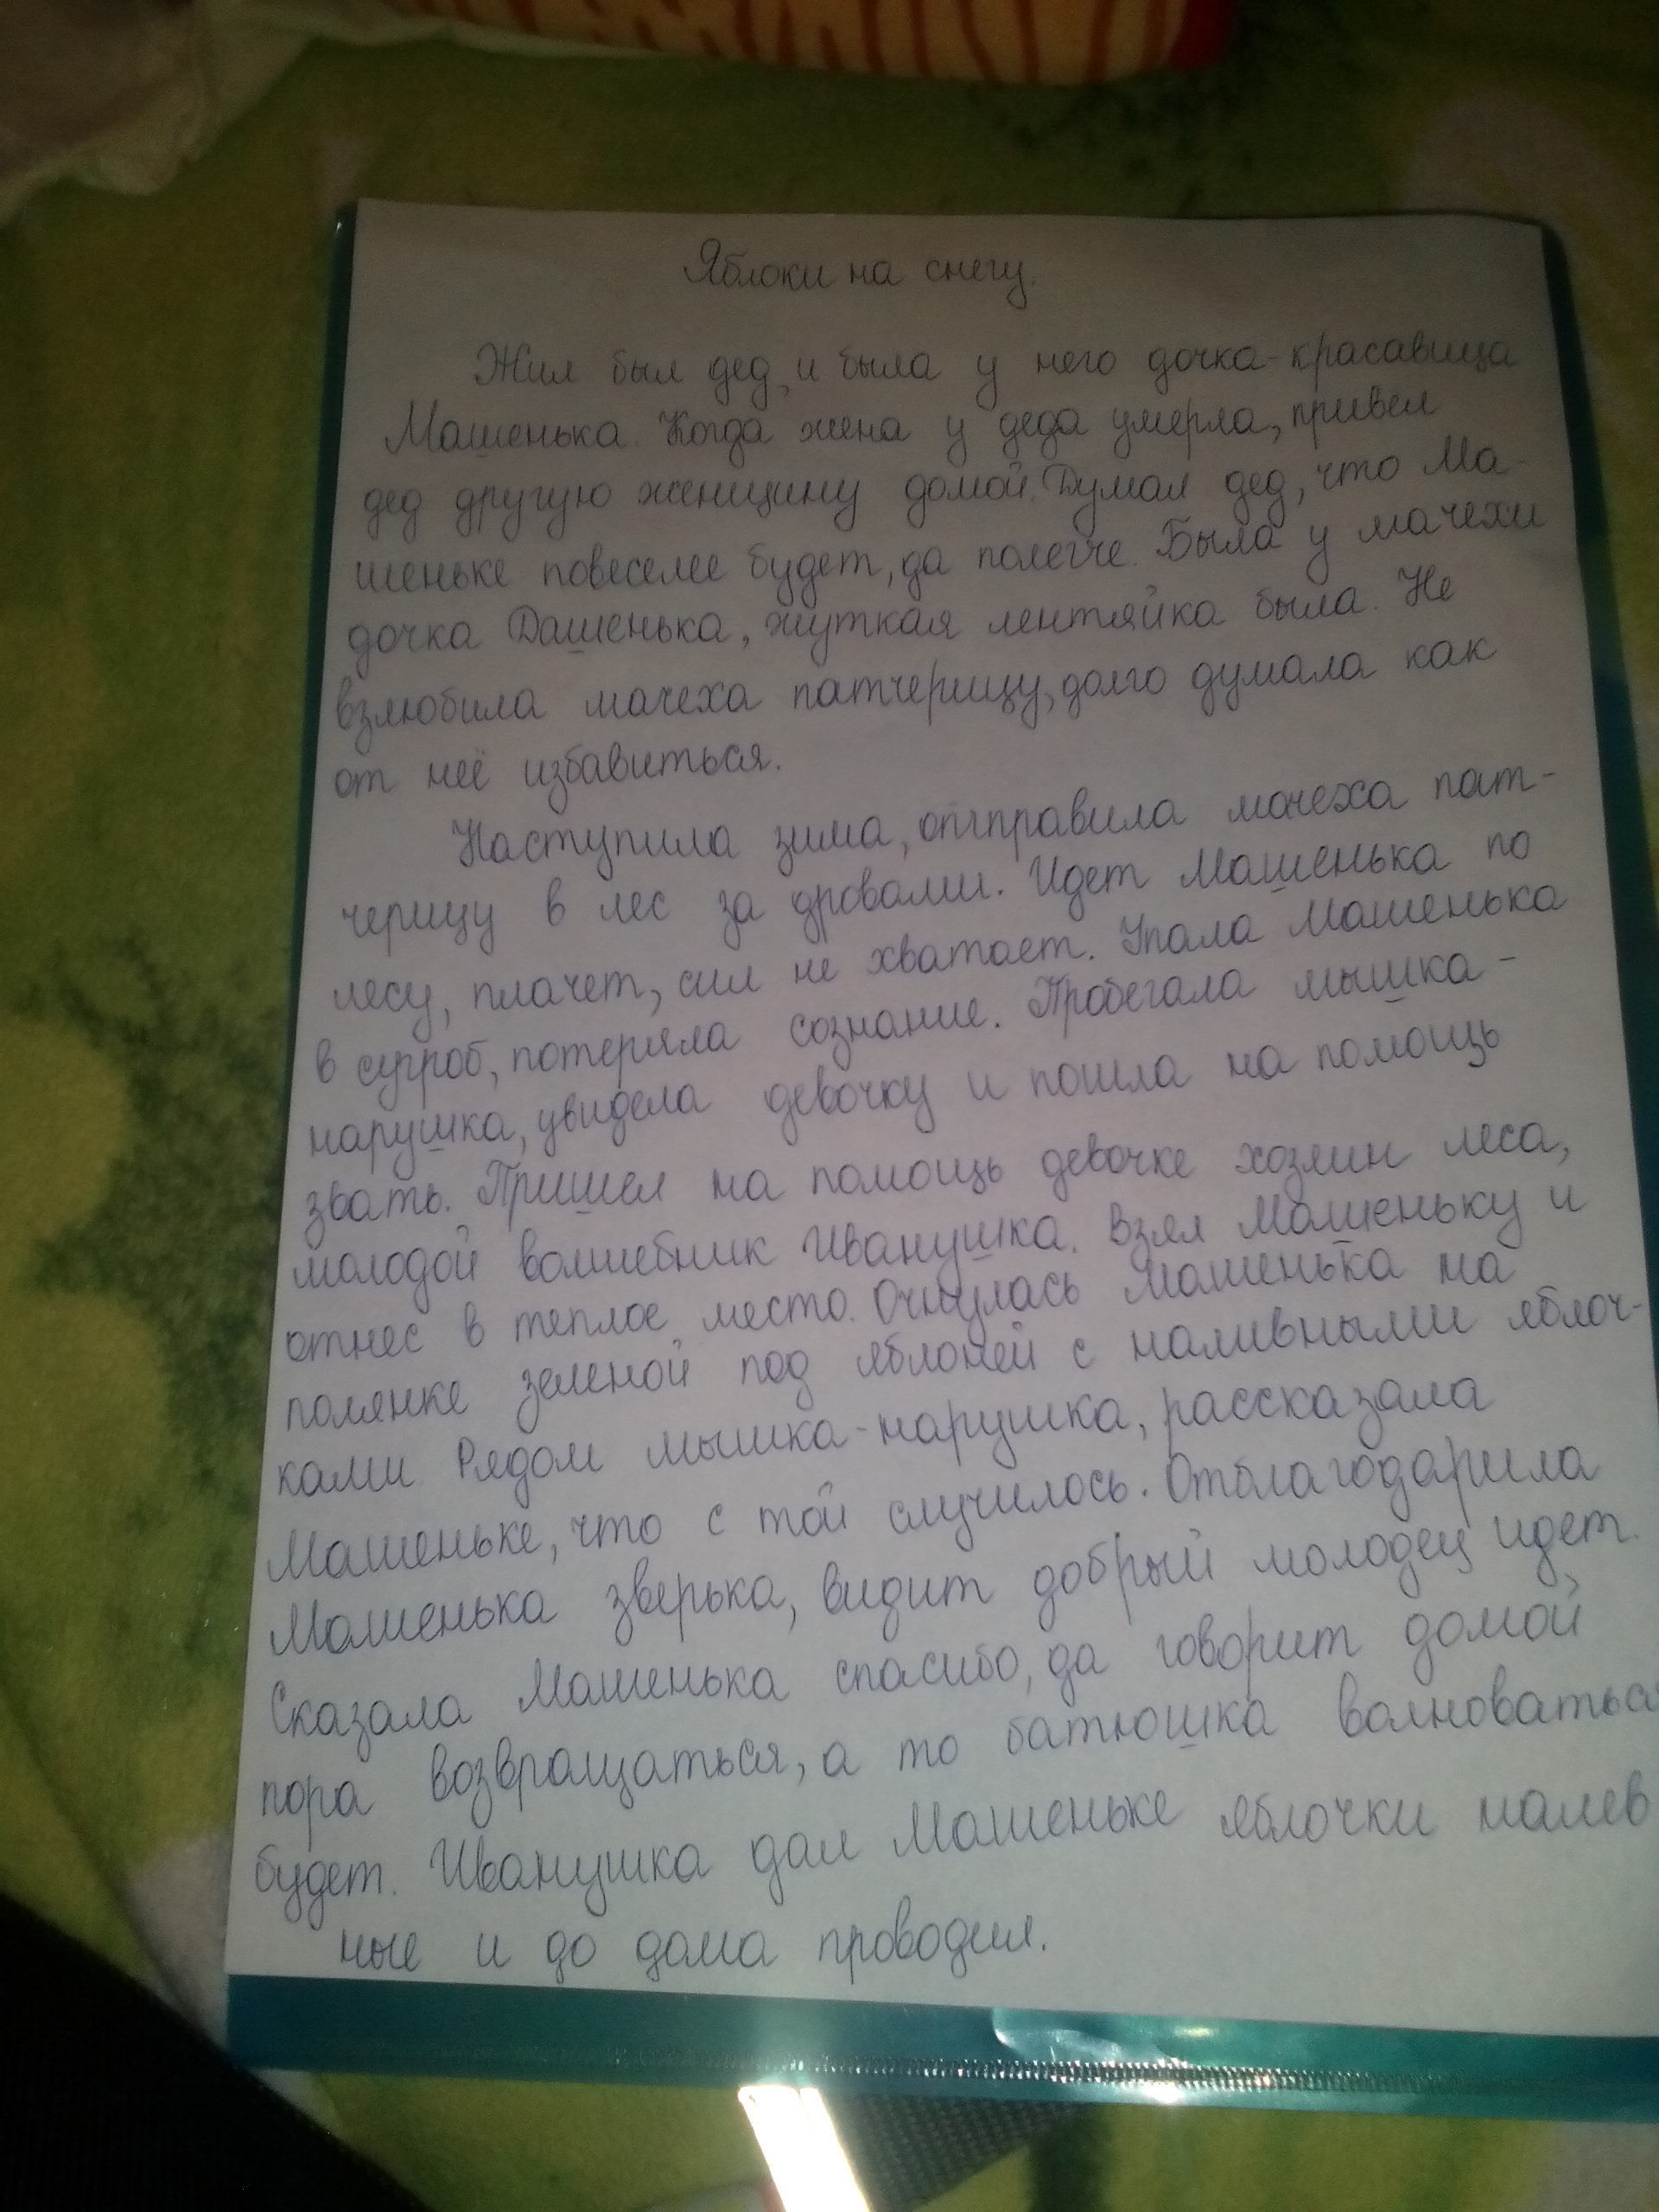 Яблоки на снегу.
Жил был дед, и была у него дочка-красавица
Машенька. Когда жена у деда умерла, привел
дед другую женщину домой. Думал дед, что Ма-
шеньке повеселее будет, да полегче. Была у мачехи
дочка Дашенька, жуткая лентяйка была. Не
взлюбила мачеха патчерицу, долго думала как
от неё избавиться.
Наступила зима, отправила мачеха пат-
черицу в лес за дровами. Идет Машенька по
лесу, плачет, сил не хватает. Упала Машенька
в сугроб, потеряла сознание. Пробегала мышка-
нарушка, увидела девочку и пошла на помощь
звать. Пришел на помощь девочке хозяин леса,
молодой волшебник Иванушка. Взял Машеньку и
отнес в теплое место. Очнулась Машенька на
полянке зеленой под яблоней с наливными яблоч-
ками. Рядом мышка-нарушка, рассказала
Машеньке, что с той случилось. Отблагодарила
Машенька зверька, видит добрый молодец идет.
Сказала Машенька спасибо, да говорит домой
пора возвращаться, а то батюшка волноваться
будет. Иванушка дал Машеньке яблочки налев
ные и до дома проводил.